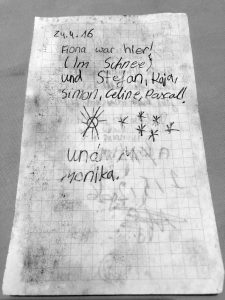 24.4.16
Fiona war hier!
(Im Schnee)
und Stefan, Kaja,
Simon, Celine, Pascal!
und
Monika.